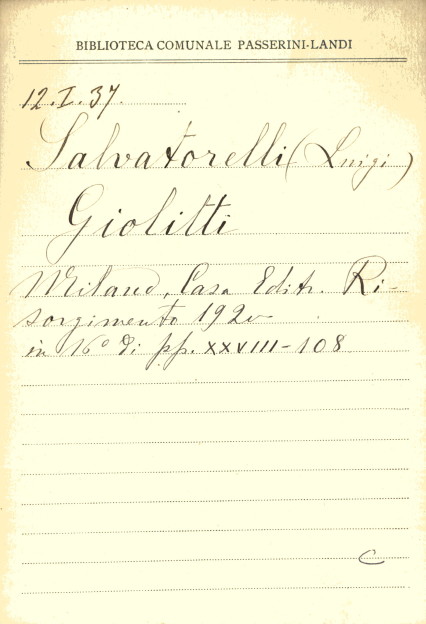 BIBLIOTECA COMUNALE PASSERINI-LANDI
12.I.37.
Salvatorelli (Luigi)
Giolitti
Milano, Casa Editr. Ri-
sorgimento 1920
in 16º di pp. XXVIII-108
C